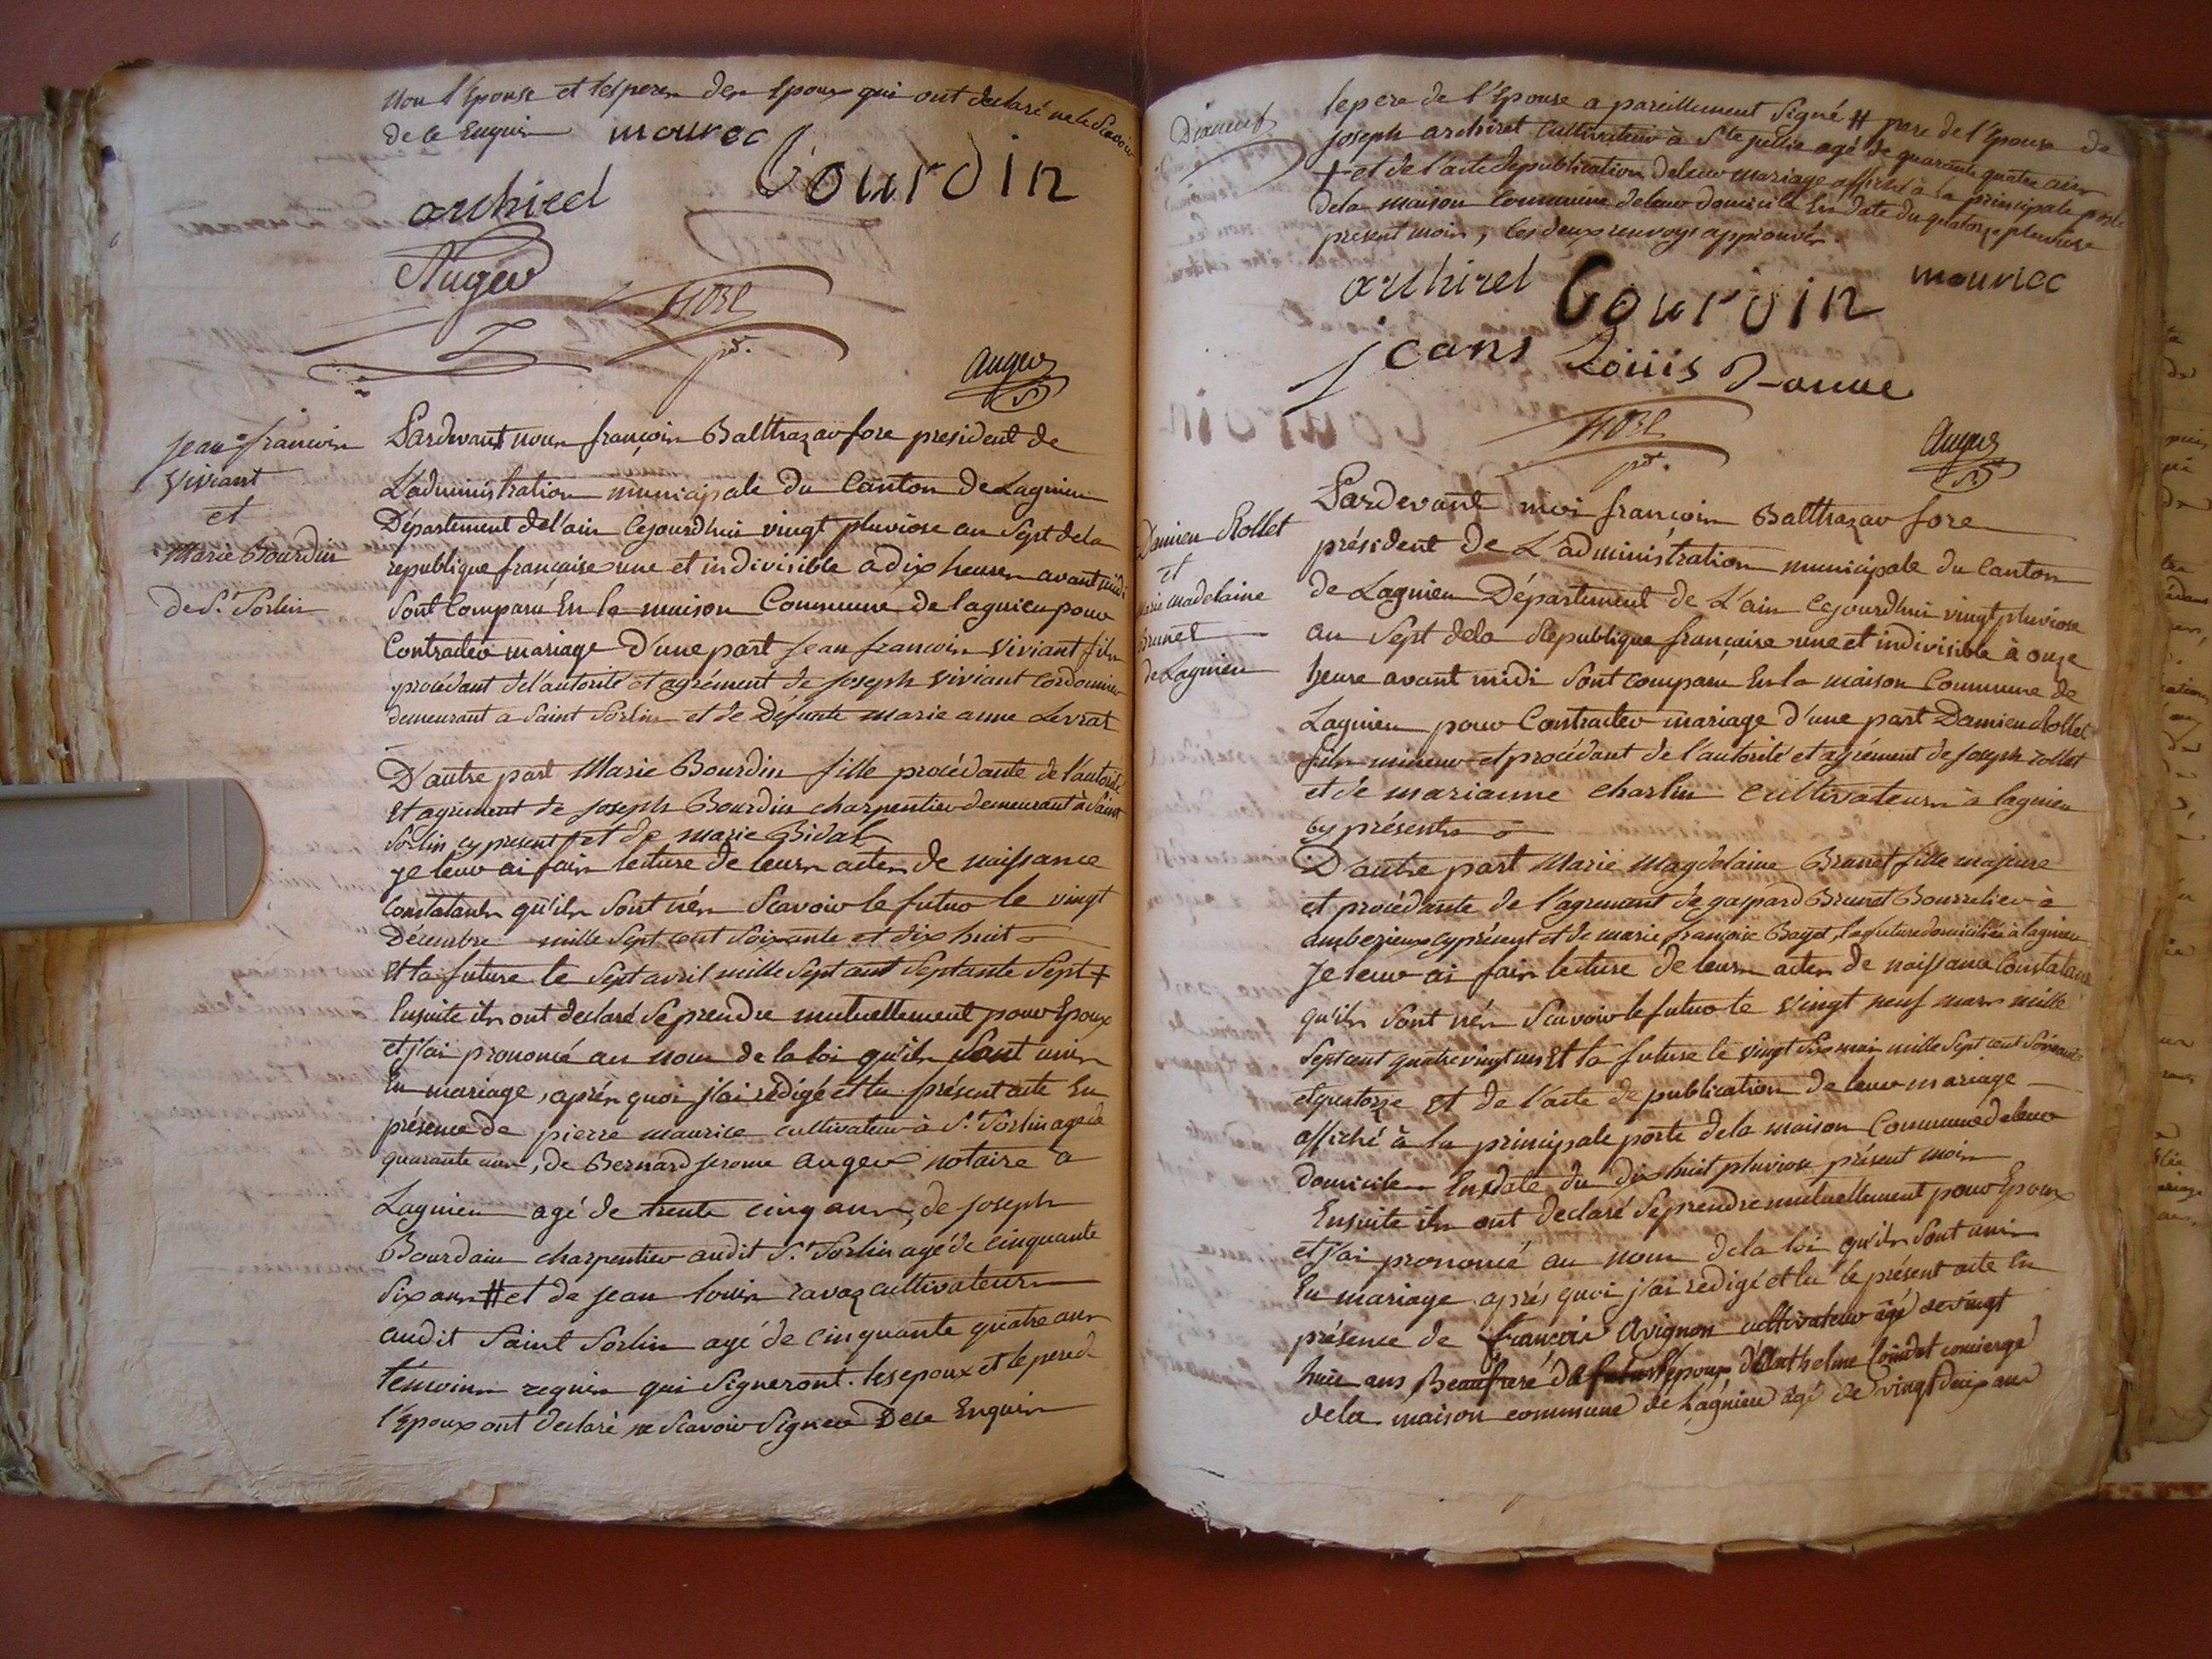 non l'Epouse et les peres des Epoux qui ont declaré ne le Scavoir
de ce Enquis mouriec Bourdin
archirel
Auger
fore
pdt.
Auger
Jean francois
Viviant
et
Marie Bourdin
de St. Sorlin
Pardevant nous françois Balthazar fore president de
L'administration municipale du Canton de Lagnieu
Département de l'ain cejourdhui vingt pluviose an Sept de la
republique française une et indivisible a dix heures avant midi
Sont Comparu En la maison Commune de lagnieu pour
Contracter mariage D'une part Jean francois Viviant fils
procédant de l'autorité et agrément de Joseph Viviant Cordonnier
demeurant a Saint Sorlin et de Défunte marie anne Levrat
D'autre part Marie Bourdin fille procédante de l'autorité
et agrément de Joseph Bourdin charpentier demeurant à Saint
Sorlin cy present et de marie Bidal
je leur ai fais lecture de leurs actes de naissance
Constatants qu'ils Sont nés Scavoir le futur le vingt
Décembre mille Sept cent Soixante et dix huit
et la future le Sept avril mille Sept cent Septante Sept +
Ensuite ils ont declaré Se prendre mutuellement pour Epoux
et j'ai prononcé au nom de la loi qu'ils Sont unis
En mariage, après quoi j'ai rédigé et lu présent acte En
présence de pierre maurice cultivateur à St. Sorlin age de
quarante ans, de Bernard Jerome auger notaire a
Lagnieu agé de trente cinq ans, de Joseph
Bourdain charpentier audit St. Sorlin agé de cinquante
Six ans # et de Jean louis ravaz cultivateurs
audit Saint Sorlin agé de cinquante quatre ans
témoins requis qui Signeront. les epoux et le pere de
l'Epoux ont declaré ne Scavoir Signer De ce Enquis
le pere de l'Epouse a pareillement Signé # pere de l'Epouse de
Joseph archirel Cultivateur à Ste jullie agé de quarante quatre ans
+ et de l'acte de publication de leur mariage affiché à la principale porte
de la maison Commune de leur domicile En date du quatorze pluviose
present mois, les deux renvoys approuvés.
archirel Bourdin mouriec
jeans Louis
fore
pdt.
Auger
Damien Rollet
et
marie madelaine
Brunet
de Lagnieu
Pardevant moi francois Balthazar fore
président de L'administration municipale du Canton
de Lagnieu Département de L'ain Cejourdhui vingt pluviose
an Sept de la République française une et indivisible à onze
heure avant midi Sont comparu En la maison Commune de
Lagnieu pour Contracter mariage d'une part Damien Rollet
fils mineur et procédant de l'autorité et agrément de Joseph rollet
et de marianne charlin cultivateurs à lagnieu
cy présents
D'autre part Marie Magdelaine Brunet fille majeure
et procédante de l'agrement de gaspard Brunet Bourrelier à
amberieux cy présent et de marie françoise Bayet, la future domiciliée à lagnieu
Je leur ai fais lecture de leurs actes de naissance Constatant
qu'ils Sont nés Scavoir le futur le Vingt neuf mars mille
Sept cent quatre vingt un et la future le vingt Six mai mille Sept cent Soixante
et quatorze et de l'acte de publication de leur mariage
affiché à la principale porte de la maison Commune de leur
domicile En date du dix huit pluviose présent mois
Ensuite ils ont declaré Se prendre mutuellement pour Epoux
et j'ai prononcé au nom de la loi qu'ils Sont unis
En mariage après quoi j'ai redigé et lu le présent acte En
présence de francois Avignon cultivateur agé de vingt
huit ans Beaufrere de l'epoux, d'Anthelme concierge
de la maison commune de Lagnieu agé de vingt deux ans